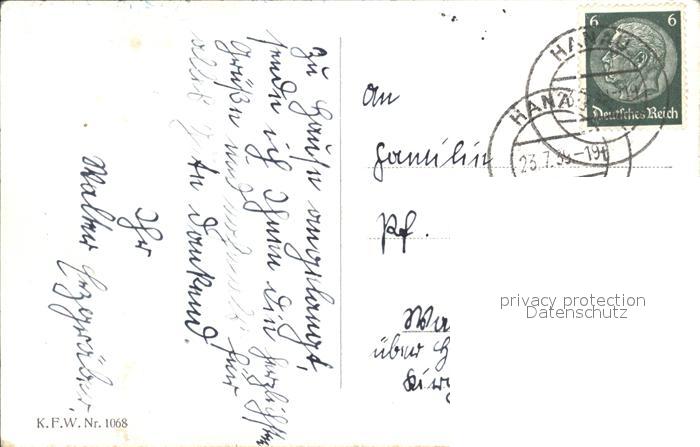 Zu Hause angelangt,
sende ich Ihnen die herzlichsten
Grüße und nochmals für
alles Gute dankend.
Ihr
Walter
K.F.W. Nr. 1068
An
Familie
Pf.
Wa
über H
Kirg
6 6
Deutsches Reich
HANAU
HANA
23.7.39.-19
privacy protection
Datenschutz